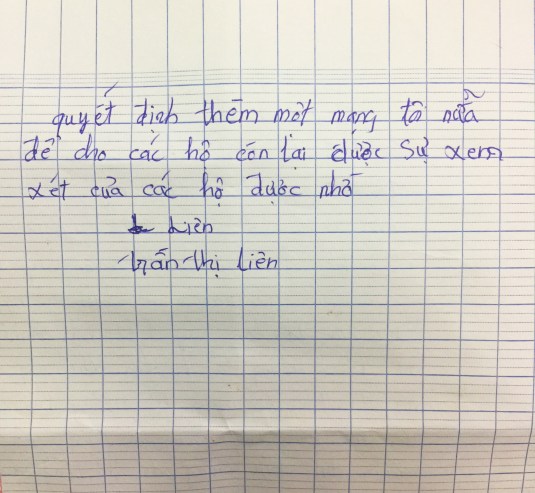 quyết định thêm một mạng tô nữa
để cho các hộ còn lại được sự xem
xét của các hộ được nhờ
Liên
trần thị Liên